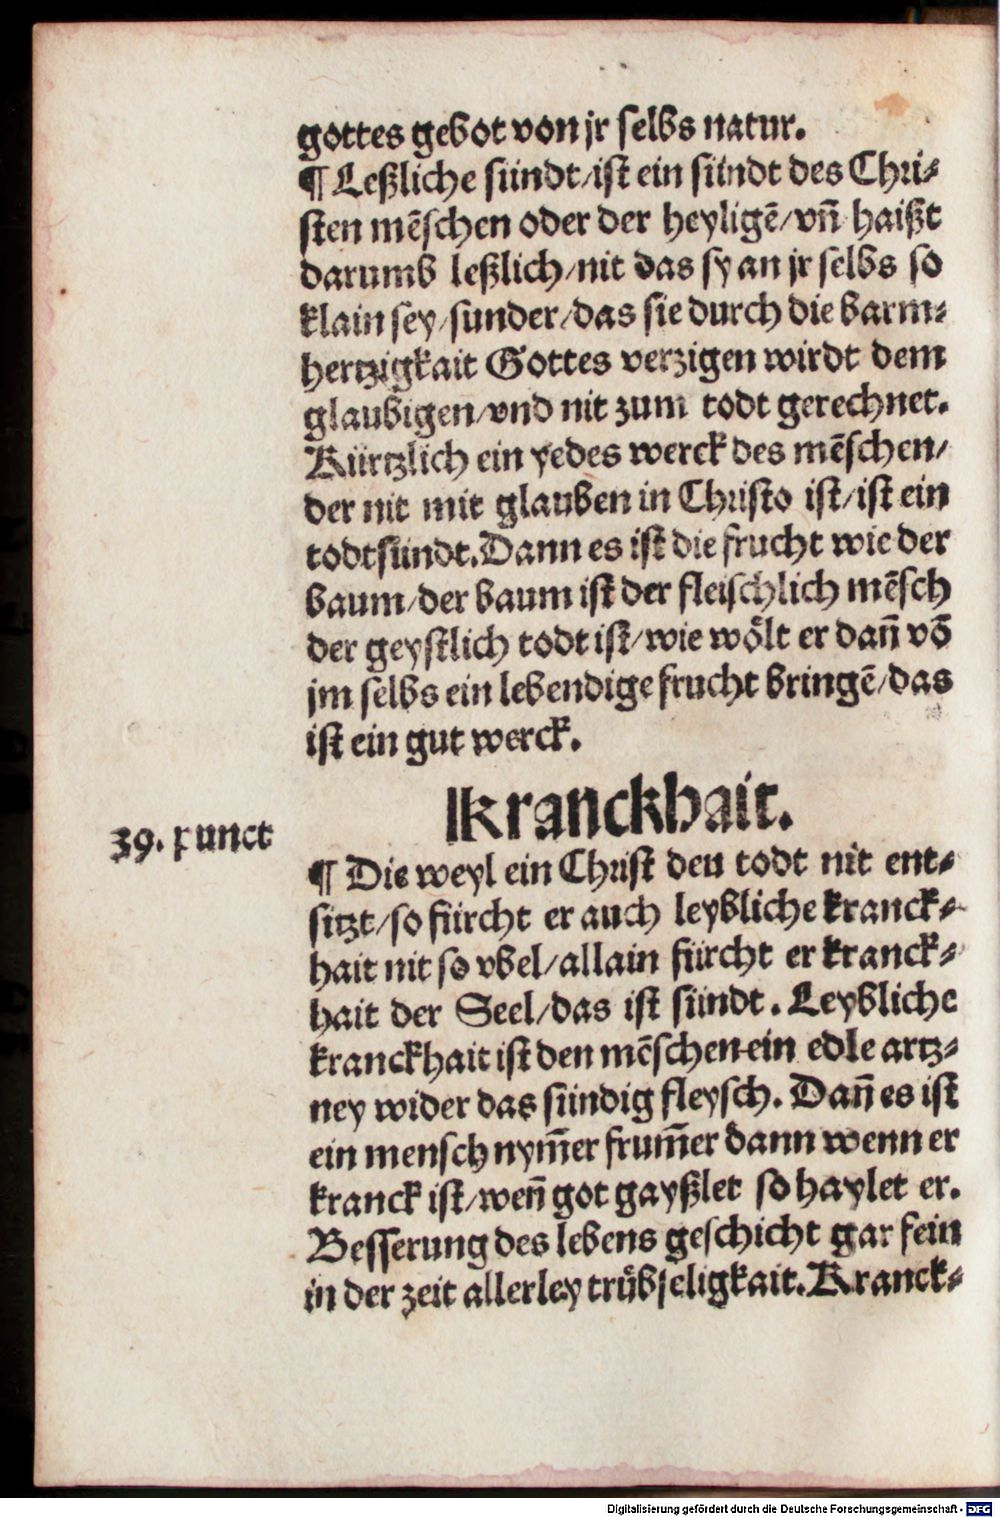 gottes gebot von jr selbs natur.
¶ Leßliche sündt/ist ein sündt des Chri⸗
sten mēschen oder der heyligē/vñ haißt
darumb leßlich/nit das sy an jr selbs so
klain sey/sunder/das sie durch die barm⸗
hertzigkait Gottes verzigen wirdt dem
glaubigen/vnd nit zum todt gerechnet.
Kürtzlich ein yedes werck des mēschen/
der nit mit glauben in Christo ist/ist ein
todtsündt. Dann es ist die frucht wie der
baum/der baum ist der fleischlich mēsch
der geystlich todt ist/wie wölt er dañ vō
jm selbs ein lebendige frucht bringē/das
ist ein gut werck.
Kranckhait.
39. punct
¶ Die weyl ein Christ den todt nit ent⸗
sitzt/so fürcht er auch leybliche kranck⸗
hait nit so vbel/allain fürcht er kranck⸗
hait der Seel/das ist sündt. Leybliche
kranckhait ist den mēschen ein edle artz⸗
ney wider das sündig fleysch. Dañ es ist
ein mensch nym̄er frum̄er dann wenn er
kranck ist/weñ got gayßlet so haylet er.
Besserung des lebens geschicht gar fein
in der zeit allerley trübseligkait. Kranck⸗
Digitalisierung gefördert durch die Deutsche Forschungsgemeinschaft - DFG